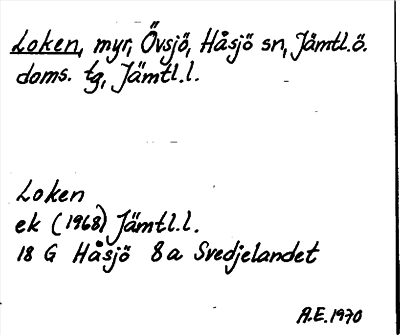 Loken, myr, Övsjö, Håsjö sn, Jämtl.ö.
doms. tg, Jämtl.l.
Loken
ek (1968) Jämtl.l.
18 G Håsjö 8a Svedjelandet
A.E. 1970